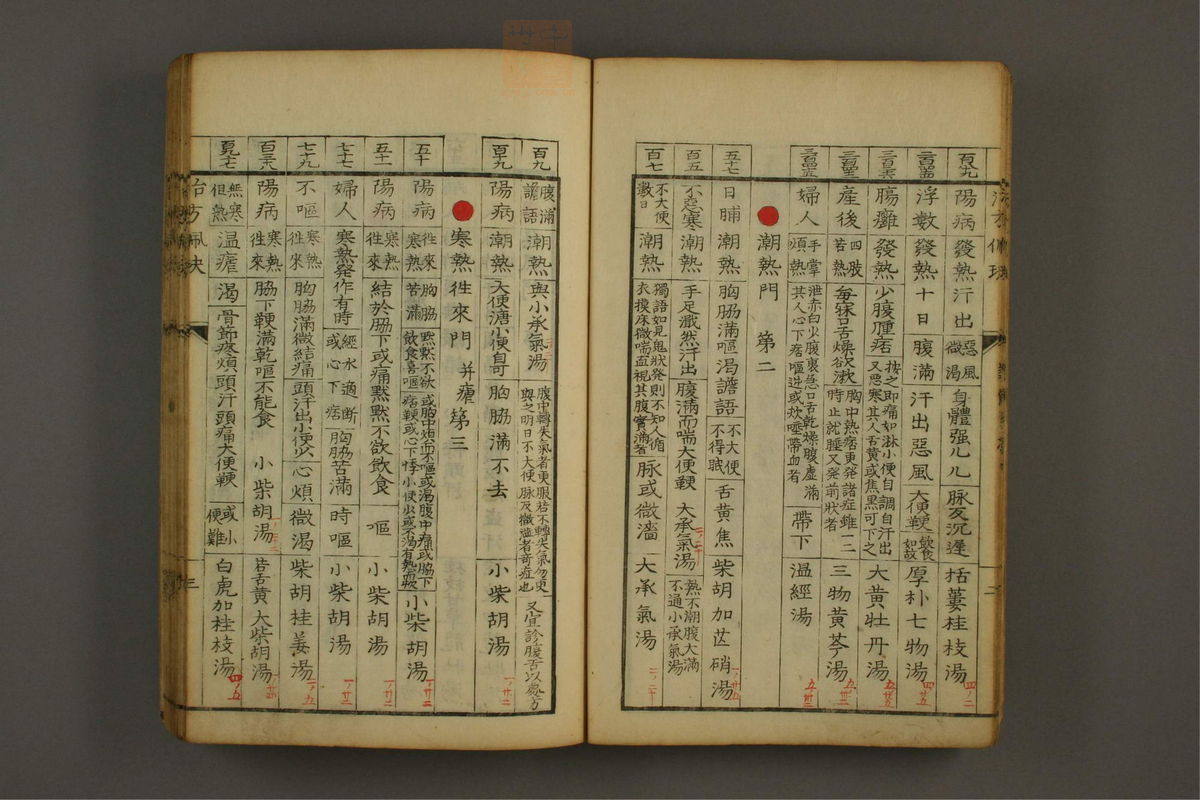 陽病 發熱 汗出 惡風 微渴 身體强几几 脉反沉遲 括蔞桂枝湯
浮數 發熱 十日 腹滿 汗出惡風 大便鞕 飲食如故 厚朴七物湯
腸癰 發熱 少腹腫痞 按之即痛如淋小便自調自汗出又惡寒其人舌黃或焦黑可下之 大黃牡丹湯
產後 四肢苦熱 每寐口舌燥欲漱 胸中熱痞更發諸症雖一二時止就睡又發前狀者 三物黃芩湯
婦人 手掌煩熱 泄赤白少腹裏急口舌乾燥腹虛滿其人心下痞嘔逆或炊唾帶血者 帶下 温經湯
潮熱門 第二
五七 日晡 潮熱 胸脇滿嘔渴譫語 不大便不得眠 舌黃焦 柴胡加芒硝湯
百五 不惡寒 潮熱 手足濈然汗出 腹滿而喘大便鞕 大承氣湯 熱不潮腹大滿不通小承氣湯
百七 不大便數日 潮熱 獨語如見鬼狀發則不知人循衣摸床微喘直視其腹實滿者 脉或微濇 大承氣湯
百九 腹滿譫語 潮熱 與小承氣湯 腹中轉失氣者更服若不轉失氣勿更與之明日不大便脉反微濇者奇症也 又宜診腹舌以處方
百九 陽病 潮熱 大便溏小便自可 胸脇滿不去 小柴胡湯
寒熱徃來門 并瘧 第三
五十 陽病 徃來寒熱 胸脇苦滿 默默不欲飲食喜嘔 或胸中煩而不嘔或渴或腹中痛或脇下痞鞕或心下悸小便少或不渴有熱或欬 小柴胡湯
五十一 陽病 寒熱徃來 結於脇下或痛默默不欲飲食 嘔 小柴胡湯
七十七 婦人 寒熱發作有時 經水適斷或心下痞 胸脇苦滿 時嘔 小柴胡湯
七十九 不嘔 寒熱徃來 胸脇滿微結痛 頭汗出小便少 心煩 微渴 柴胡桂姜湯
陽病 寒熱徃來 脇下鞕滿乾嘔不能食 小柴胡湯 舌黃 大柴胡湯
無寒但熱 温瘧 渴 骨節疼煩頭汗頭痛大便鞕 或小便難 白虎加桂枝湯
古方
三